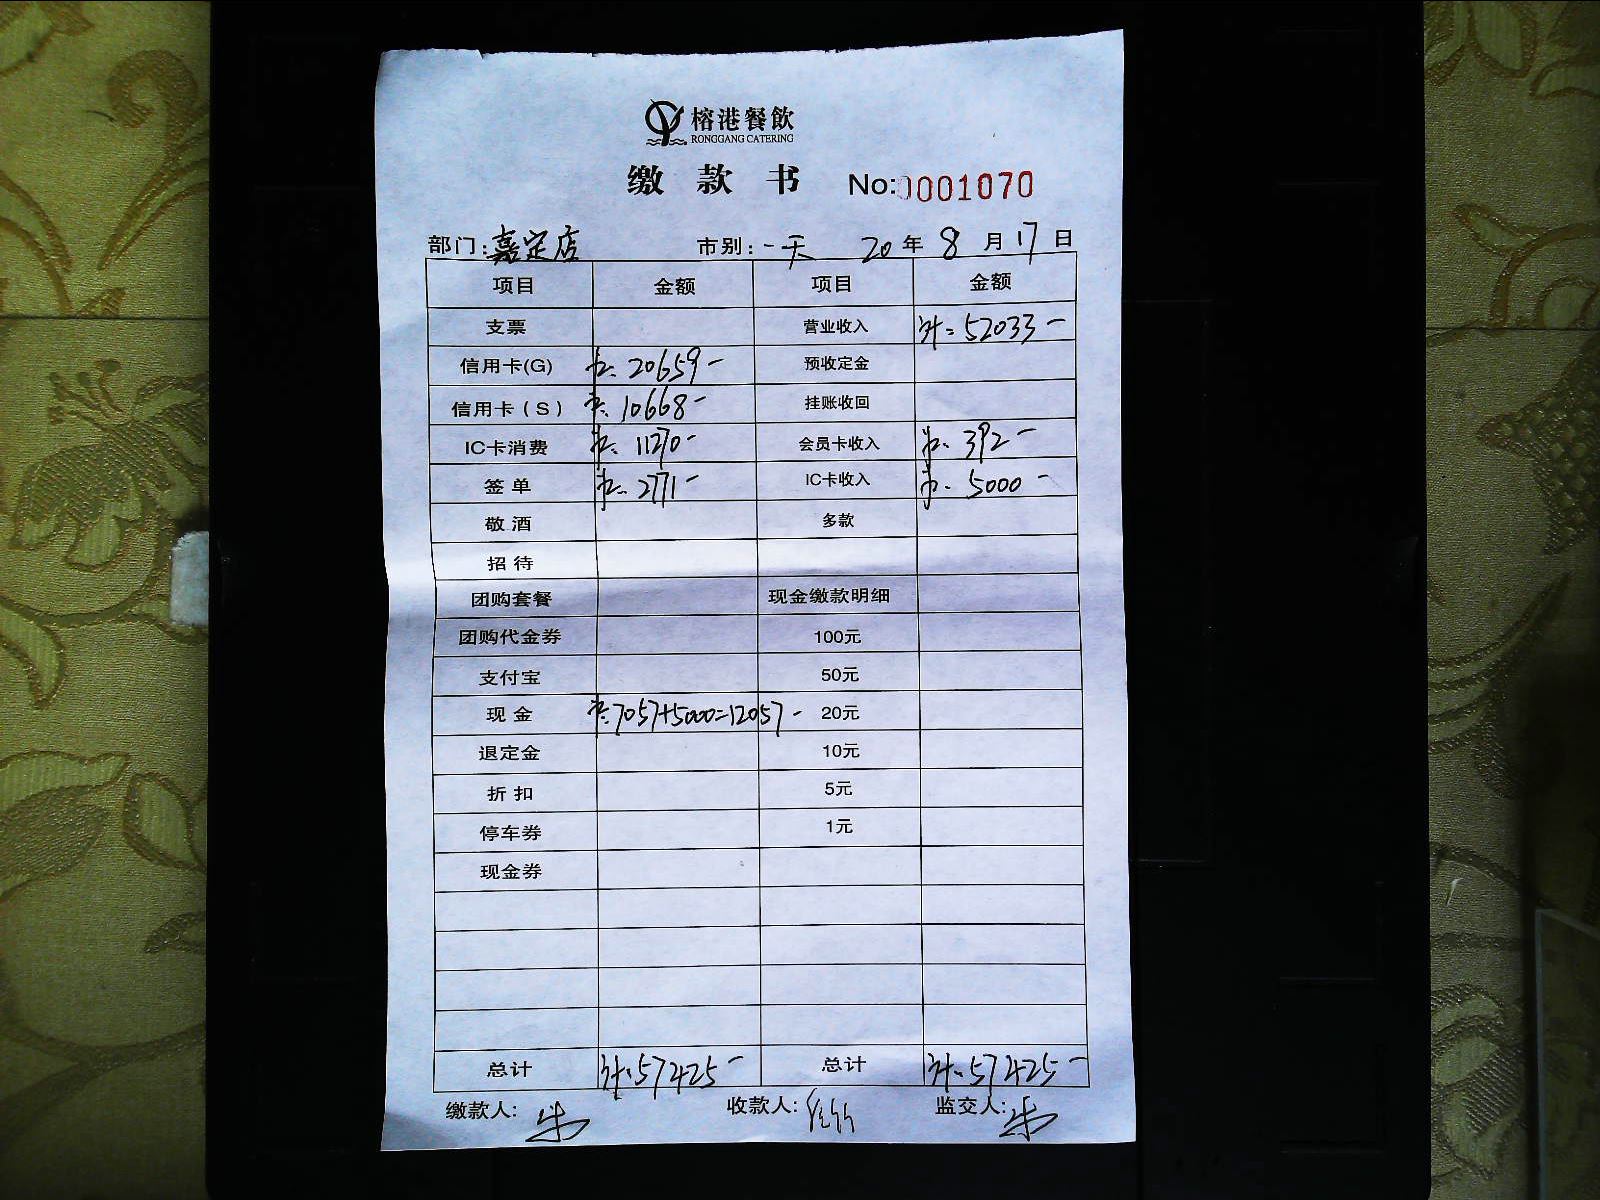 榕港餐飲
RONGGANG CATERING
缴 款 书 No:0001070
部门:嘉定店 市别:一天 20 年 8 月 17 日
项目 金额 项目 金额
支票 营业收入 计:52033-
信用卡(G) 20659- 预收定金
信用卡(S) 10668- 挂账收回
IC卡消费 11270- 会员卡收入 392-
签单 2771- IC卡收入 5000-
敬酒 多款
招待
团购套餐 现金缴款明细
团购代金券 100元
支付宝 50元
现金 7057+5000=12057- 20元
退定金 10元
折扣 5元
停车券 1元
现金券
总计 计:57425- 总计 计:57425-
缴款人: 收款人: 监交人: